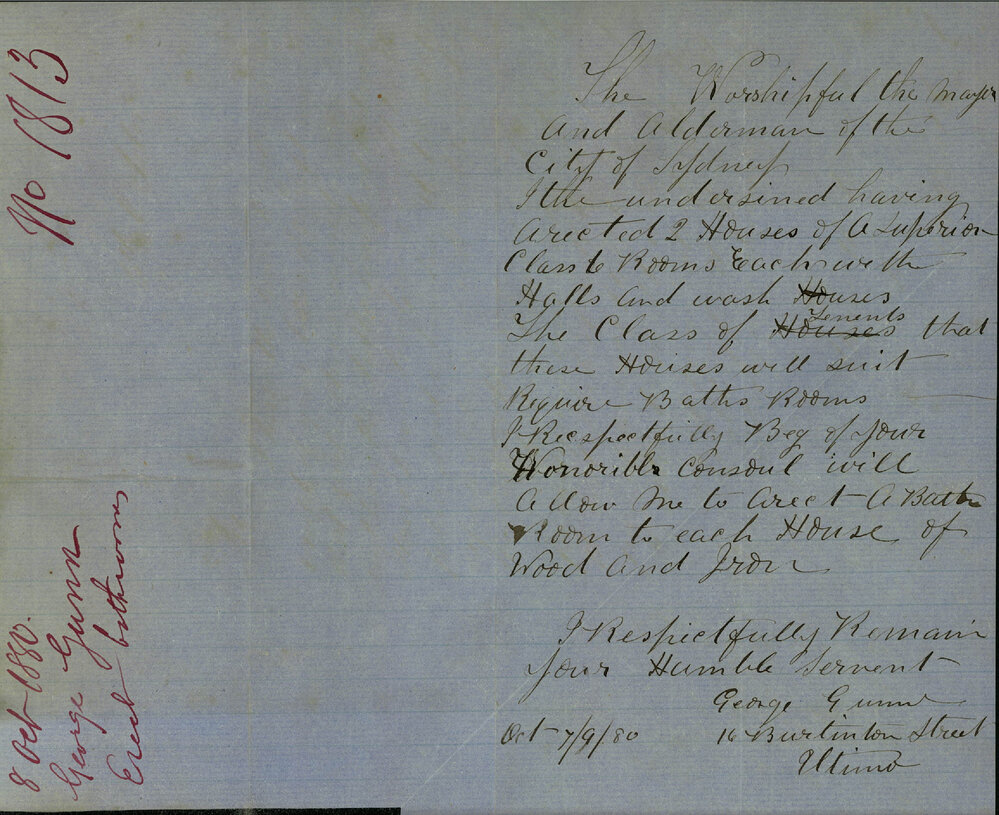 No 1813
8 Oct 1880.
George Gunn
Erect bathrooms
The Worshipful the mayer
And Alderman of the
City of Sydney
I the undersined having
Arected 2 Houses of A Superior
Class 6 Rooms Each with
Halls and wash Houses
The Class of Houses Tenents that
these Houses will suit
Require Baths Rooms
I Recspectfully Beg of your
Honorible Consoul will
Allow Me to Arect A Bath
Room to each House of
Wood And Iron
I Respectfully Remain
your Humble Servent
George Gunn
Oct 7/9/80 16 Burlinton Street
Ultimo